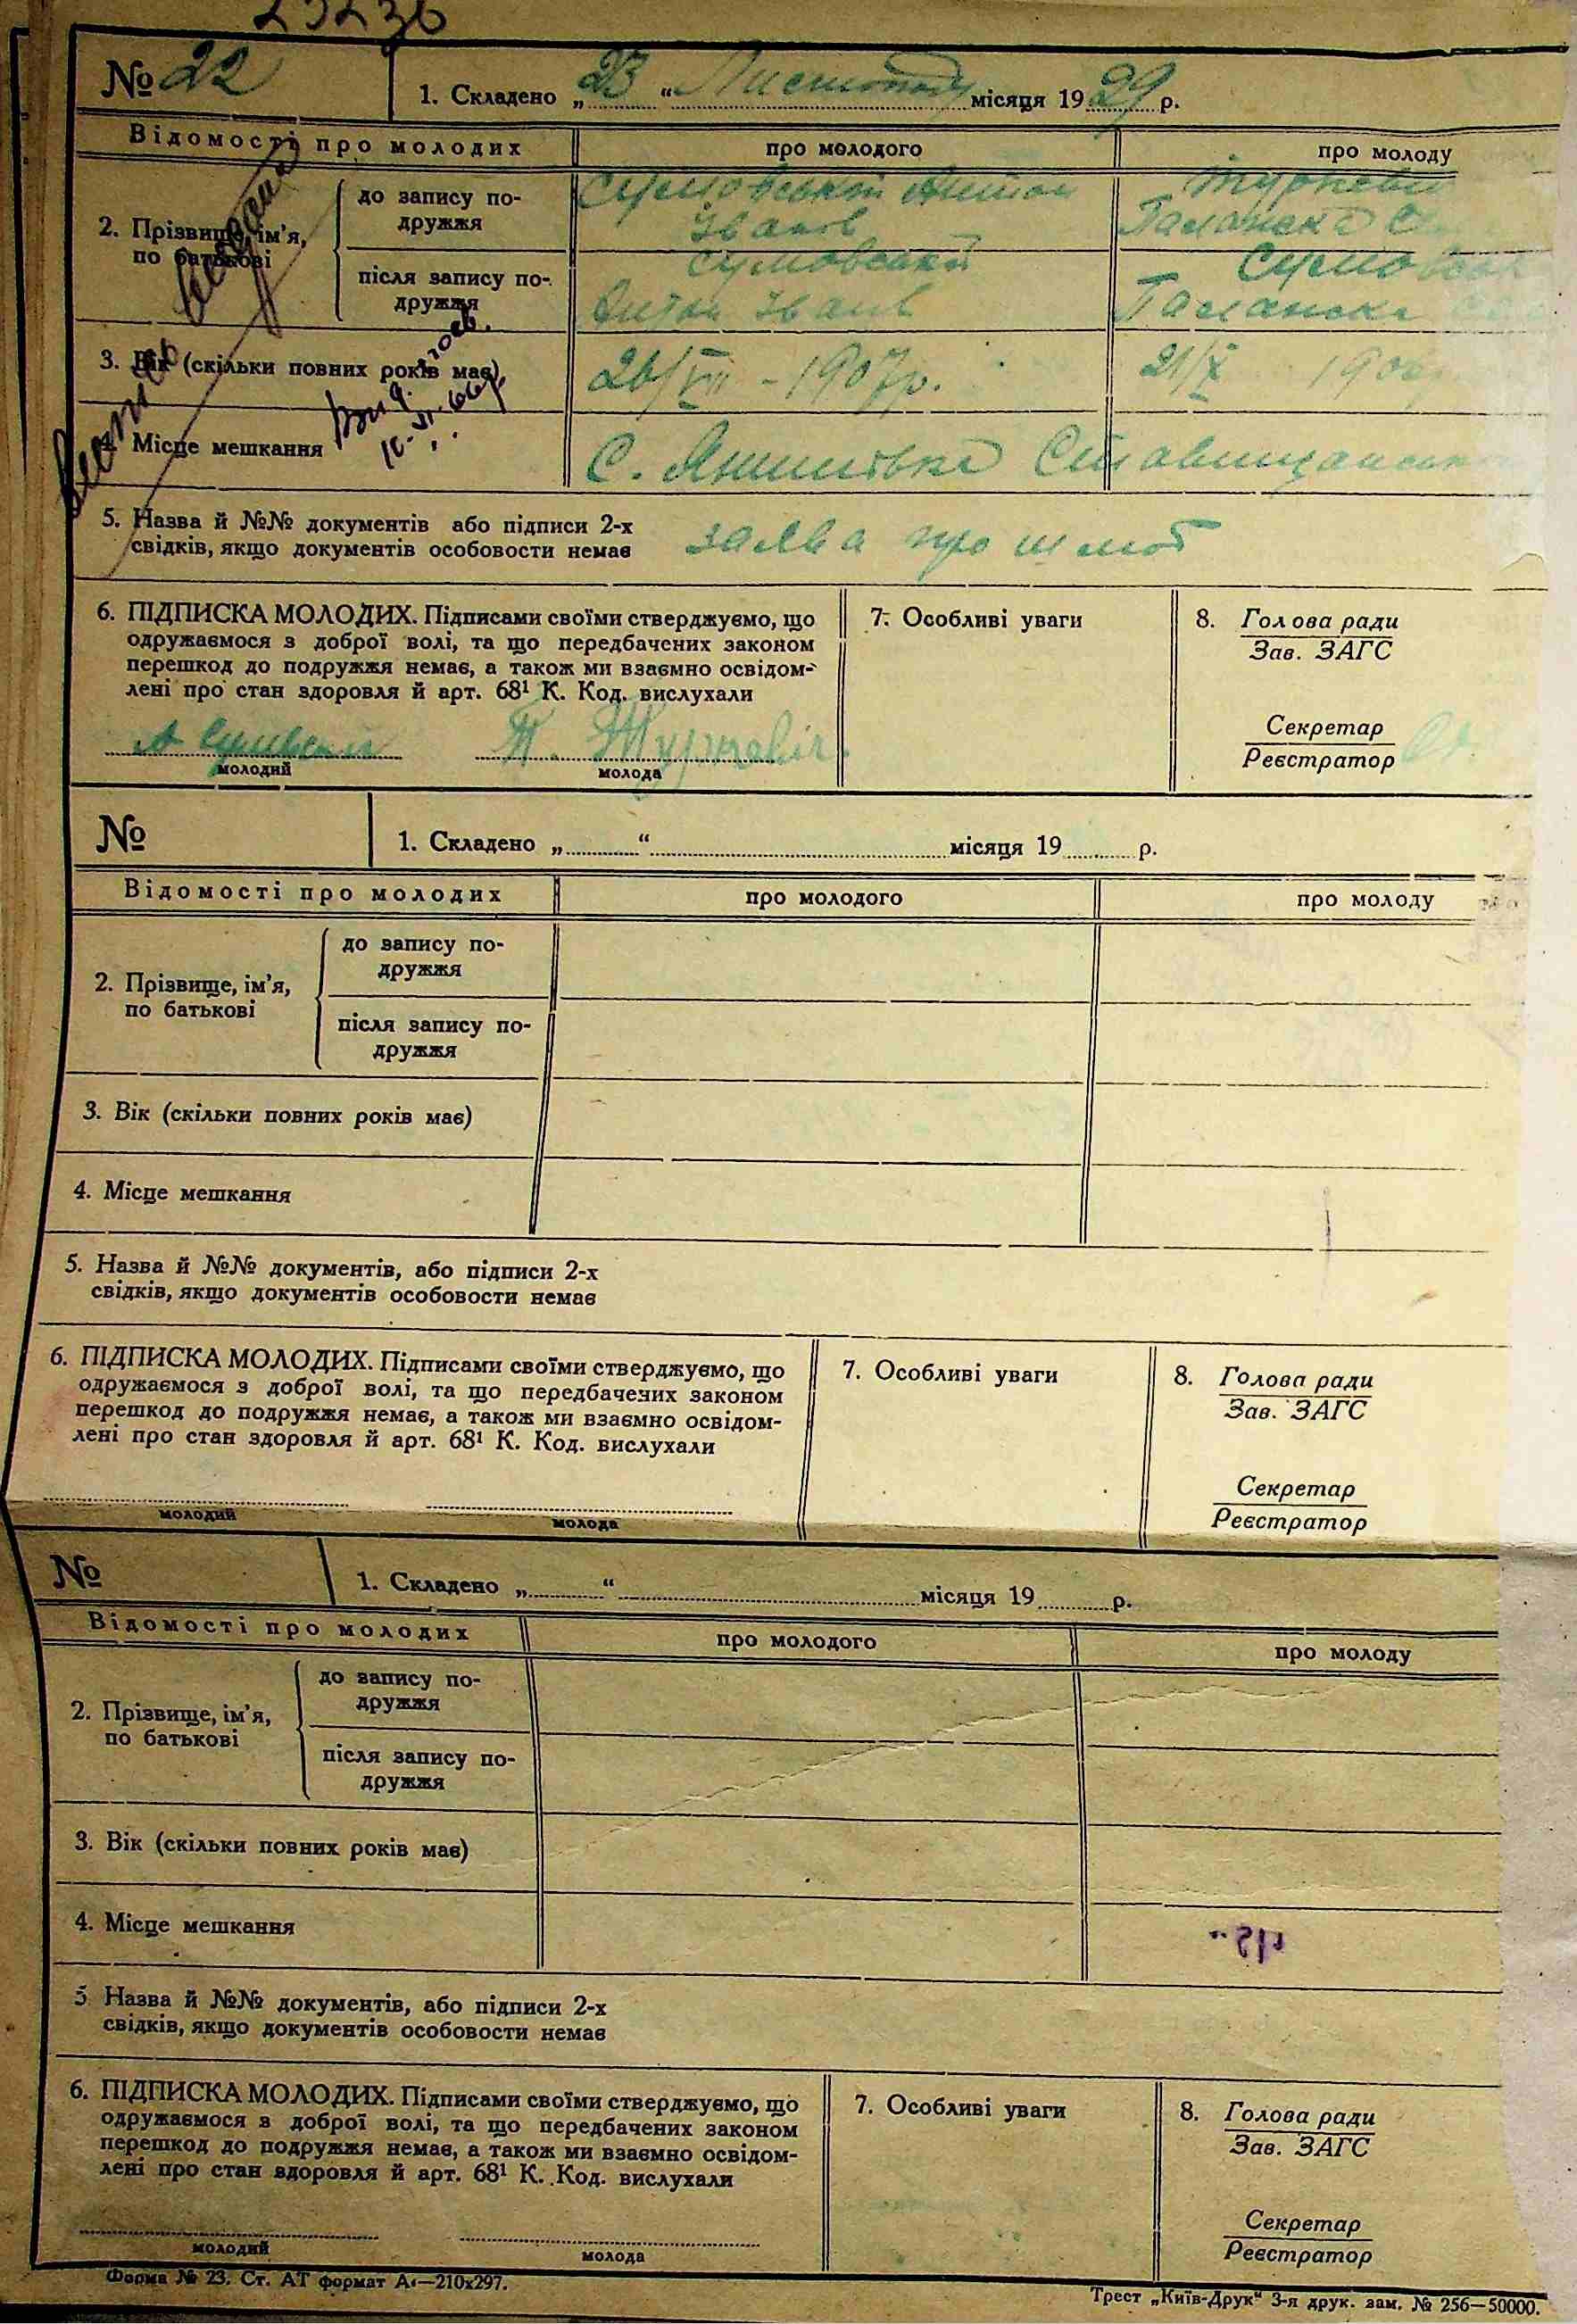 25236
№ 22
1. Складено „ 23 “ Листопада місяця 19 29 р.
Відомості про молодих про молодого про молоду
2. Прізвище, ім'я, по батькові
до запису по-
дружжя
Сумовський Антон
Іванів
після запису по-
дружжя
Сумовський
Антон Іванів
3. Вік (скільки повних років має) 26/VII - 1907р. 21/X
4. Місце мешкання С. Янишівка Ставищанськ
5. Назва й №№ документів або підписи 2-х
свідків, якщо документів особовости немає
заява про шлюб
6. ПІДПИСКА МОЛОДИХ. Підписами своїми стверджуємо, що
одружаємося з доброї волі, та що передбачених законом
перешкод до подружжя немає, а також ми взаємно освідом-
лені про стан здоровля й арт. 68¹ К. Код. вислухали
Т. Журкевіч.
молодий молода
7. Особливі уваги
8. Голова ради
Зав. ЗАГС
Секретар
Реєстратор
№
1. Складено „ “ місяця 19 р.
Відомості про молодих про молодого про молоду
2. Прізвище, ім'я,
по батькові
до запису по-
дружжя
після запису по-
дружжя
3. Вік (скільки повних років має)
4. Місце мешкання
5. Назва й №№ документів, або підписи 2-х
свідків, якщо документів особовости немає
6. ПІДПИСКА МОЛОДИХ. Підписами своїми стверджуємо, що
одружаємося з доброї волі, та що передбачених законом
перешкод до подружжя немає, а також ми взаємно освідом-
лені про стан здоровля й арт. 68¹ К. Код. вислухали
молодий молода
7. Особливі уваги
8. Голова ради
Зав. ЗАГС
Секретар
Реєстратор
№
1. Складено „ “ місяця 19 р.
Відомості про молодих про молодого про молоду
2. Прізвище, ім'я,
по батькові
до запису по-
дружжя
після запису по-
дружжя
3. Вік (скільки повних років має)
4. Місце мешкання
5 Назва й №№ документів, або підписи 2-х
свідків, якщо документів особовости немає
6. ПІДПИСКА МОЛОДИХ. Підписами своїми стверджуємо, що
одружаємося з доброї волі, та що передбачених законом
перешкод до подружжя немає, а також ми взаємно освідом-
лені про стан здоровля й арт. 68¹ К. Код. вислухали
молодий молода
7. Особливі уваги
8. Голова ради
Зав. ЗАГС
Секретар
Реєстратор
Форма № 23. Ст. АТ формат А₄—210х297.
Трест „Київ-Друк“ 3-я друк. зам. № 256—50000.